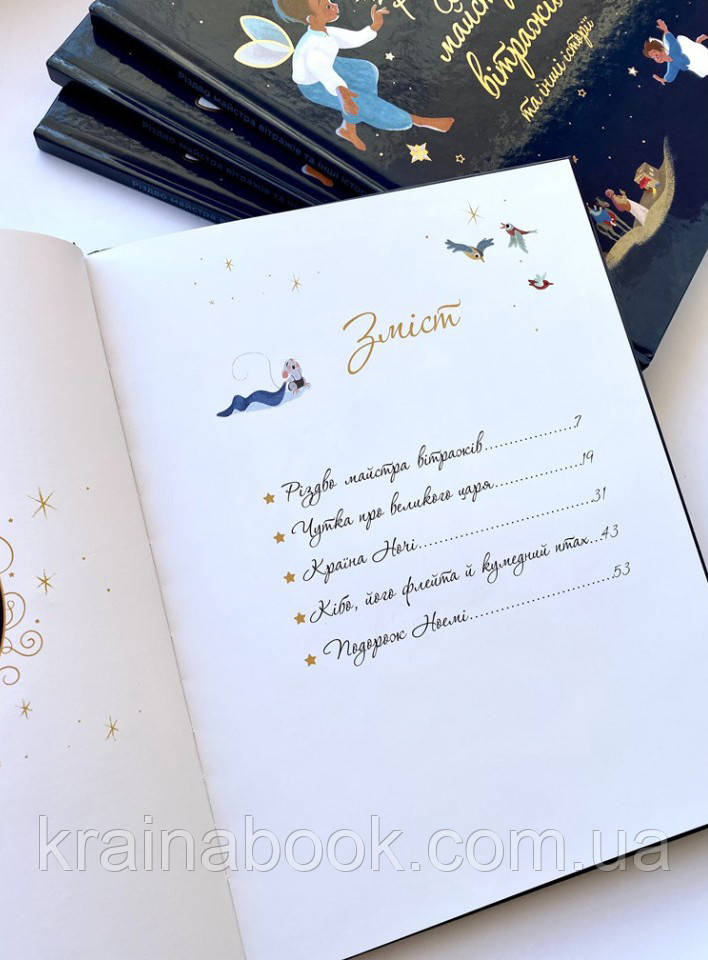 майстра
вітражів
та інші історії
Різдво майстра вітражів та інші історії
Різдво майстра вітражів та інші
Різдво майстра
Зміст
Різдво майстра вітражів..................7
Чутка про великого царя.................19
Країна Ночі...................................31
Кібо, його флейта й кумедний птах...43
Подорож Ноемі.............................53
krainabook.com.ua